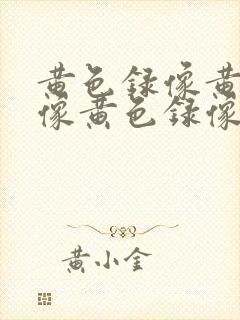 黄色録像黄
像黄色録像
黄小金